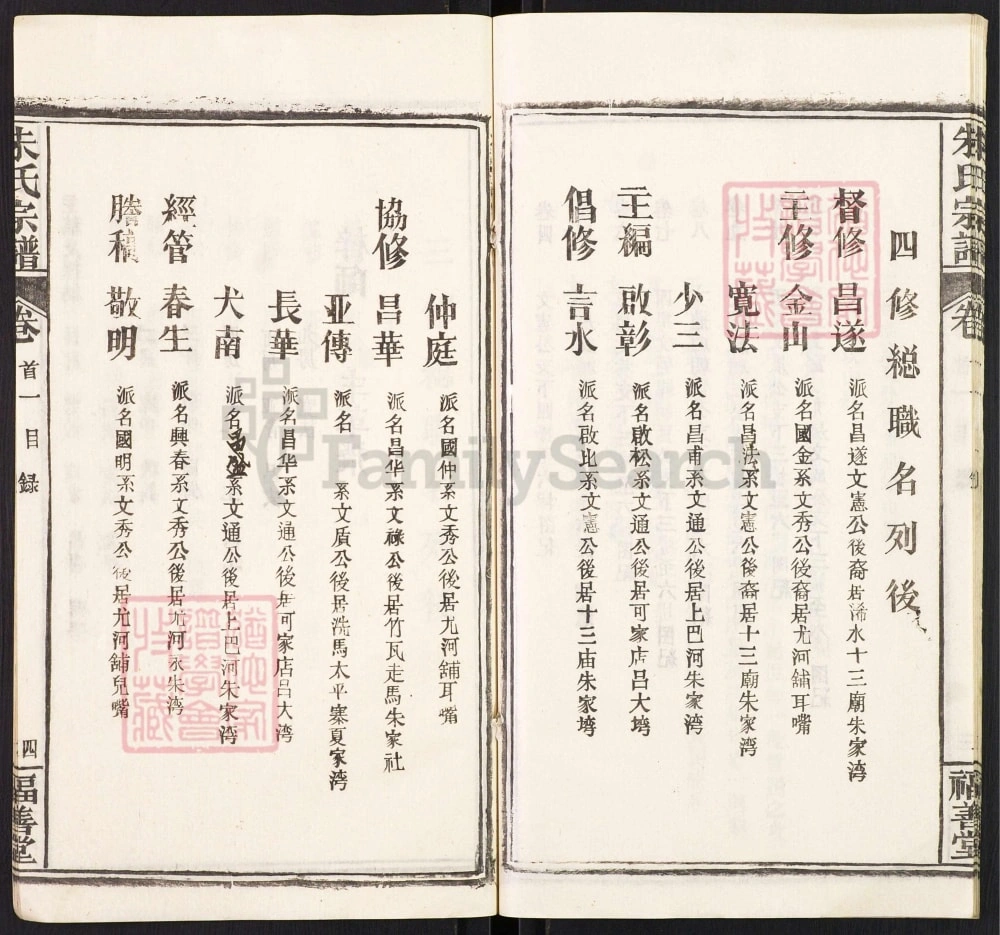 朱氏宗譜
卷
福善堂
四修総職名列後
督修 昌遂 派名昌遂文憲公後裔居浠水十三廟朱家湾
主修 金山 派名國金系文秀公後裔居尤河舖耳嘴
寬法 派名昌法系文憲公後裔居十三廟朱家湾
少三 派名昌甫系文通公後居上巴河朱家湾
主編 啟彰 派名啟松系文通公後居可家店呂大塆
倡修 言水 派名啟比系文憲公後居十三庙朱家塆
仲庭 派名國仲系文秀公後居尤河舖耳嘴
協修 昌華 派名昌华系文祿公後居竹瓦走馬朱家社
亚傳 派名 系文盾公後居洗馬太平寨夏家湾
長華 派名昌华系文通公後居可家店呂大湾
犬南 派名 系文通公後居上巴河朱家湾
經管 春生 派名興春系文秀公後居 河 朱湾
謄稿 敬明 派名國明系文秀公後居尤河舖兒嘴
朱氏宗譜
卷首一目録
四
福善堂
FamilySearch